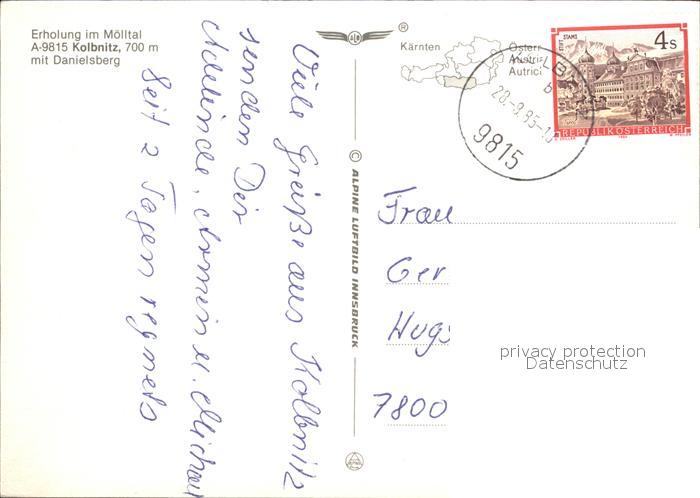 Erholung im Mölltal
A-9815 Kolbnitz, 700 m
mit Danielsberg
Viele Grüße aus Kolbnitz
senden Dir
Adelinde, Armin u. Michael
Seit 2 Tagen regnets
© ALPINE LUFTBILD INNSBRUCK
®
Kärnten
Österr
Austria
Autric
28.-9.85-1
9815
STIFT STAMS
4s
REPUBLIK ÖSTERREICH
Frau
Ger
Hugs
7800
privacy protection
Datenschutz